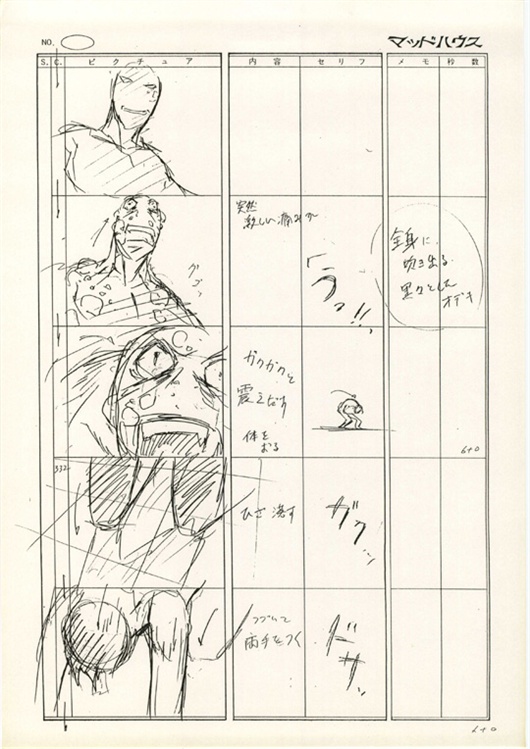 NO.
マッドハウス
S. C. ピクチュア 内容 セリフ メモ 秒数
突然
激しい痛みが
グッ
うっ!!
全身に
吹き出る
黒々とした
オデキ
ガクガクと
震えだす
体を
おる
6+0
332
ひざ落す
ガクッ
つづいて
両手をつく
ドサッ
6+0